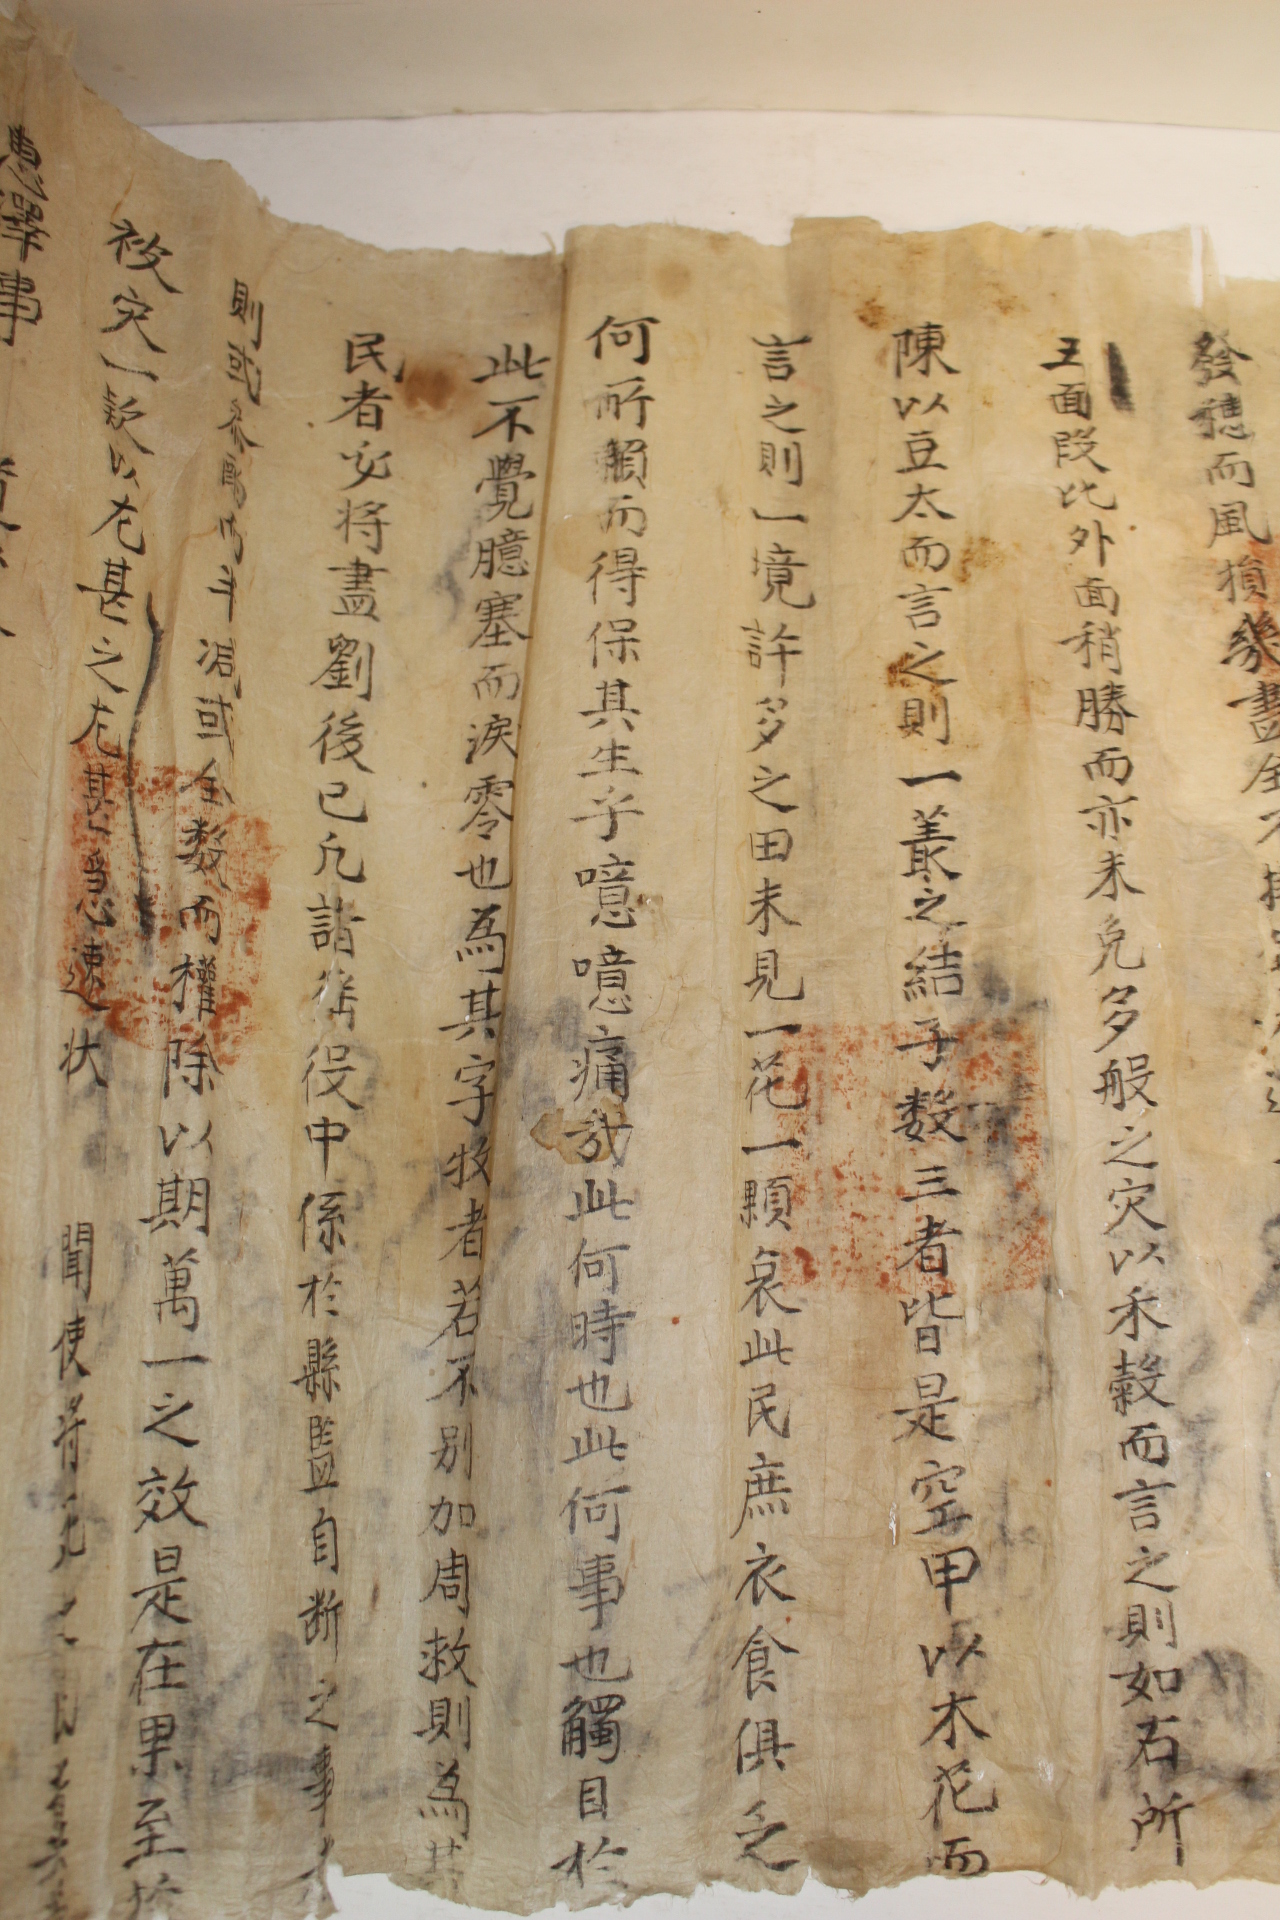 發穗而風損幾盡全不
五面段比外面稍勝而亦未免多般之灾以禾穀而言之則如右所
陳以豆太而言之則一叢之結子數三者皆是空甲以木花而
言之則一境許多之田未見一花一顆哀此民庶衣食俱乏
何所賴而得保其生乎噫噫痛哉此何時也此何事也觸目於
此不覺臆塞而淚零也為其字牧者若不別加周救則為其
民者必將盡劉後已凡諸徭役中係於縣監自斷之事
則或參酌 斗減或全数而權除以期萬一之效是在果至於
被灾一款以尤甚之尤甚爲急速状 聞使
惠澤事